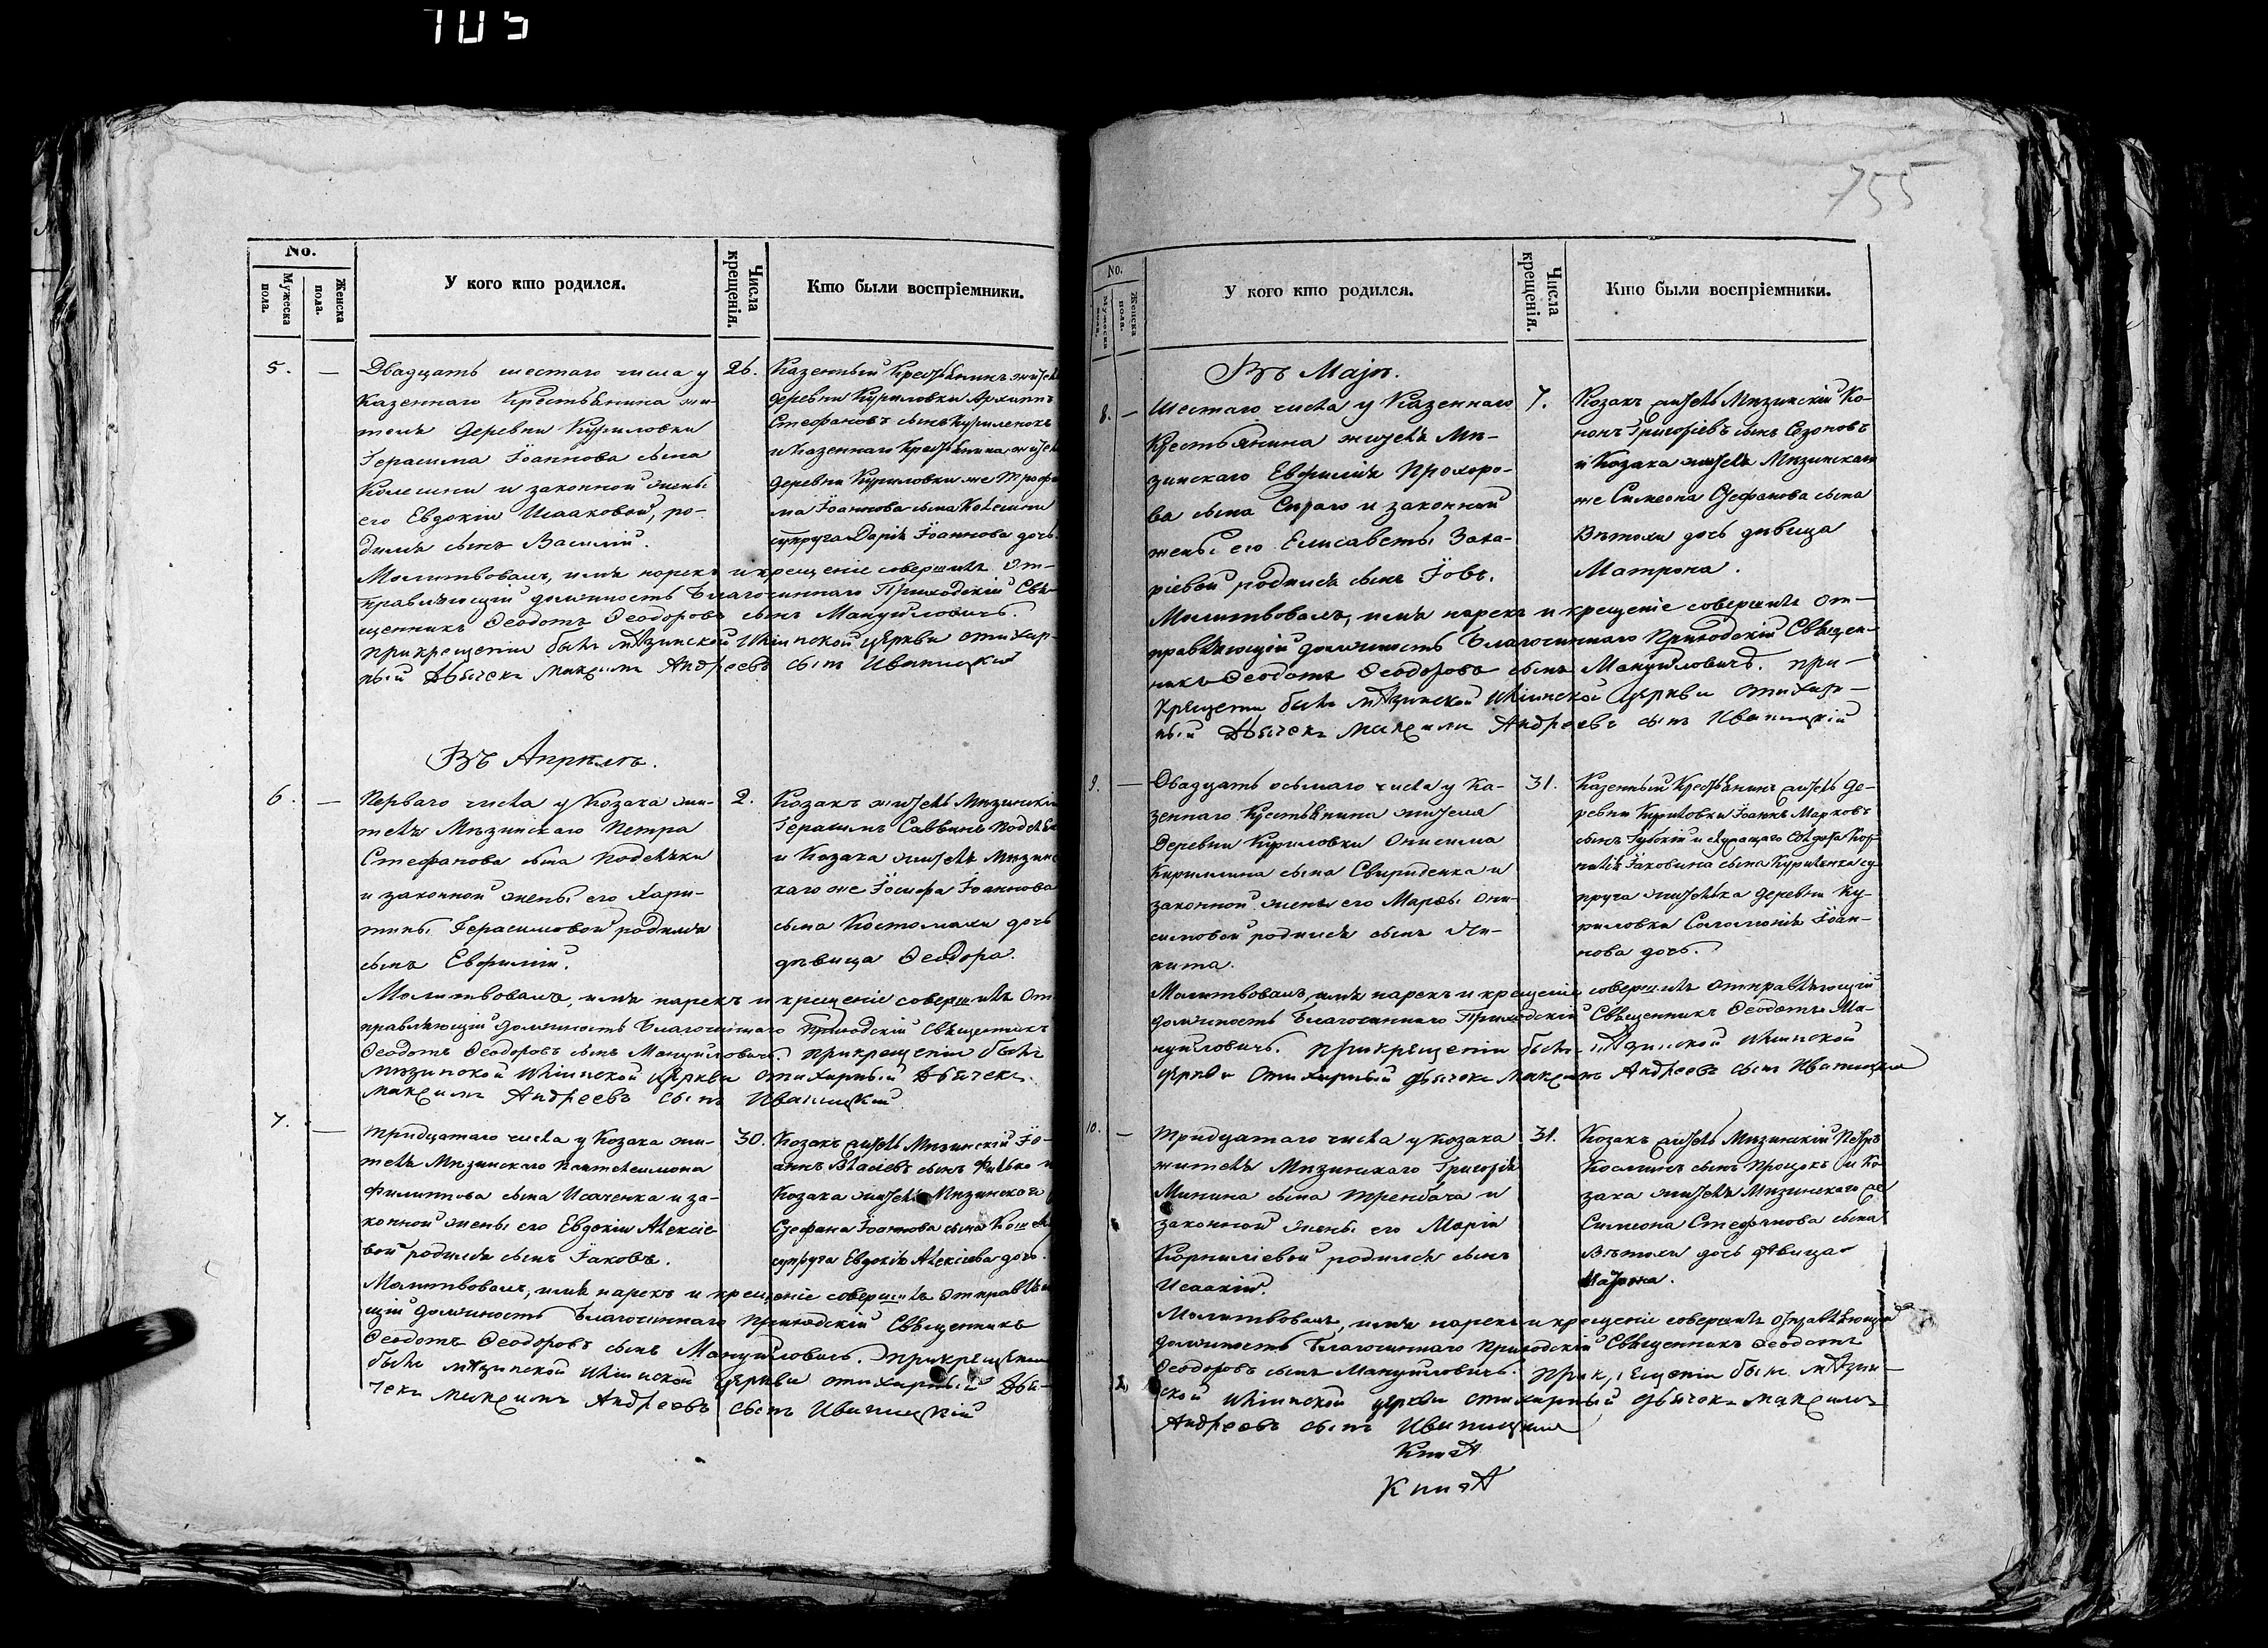 705
755
No.
Мужеска пола.
Женска пола.
У кого кто родился.
Числа крещенія.
Кто были воспріемники.
5. —
Двадцать шестаго числа у
Казеннаго Крестьянина жи-
теля деревни Куриловки
Герасима Іоаннова сына
и законной жены
его Евдокіи Исааковой, ро-
дился сынъ Василій.
26.
Казенный Крестьянинъ житель
деревни Куриловки Архиппъ
Стефановъ сынъ Куриленокъ
и Казеннаго Крестьянина жителя
деревни Куриловки же Трофи
ма Іоаннова сына
супруга Дарія Іоаннова дочь.
Молитвовалъ, имя нарекъ и крещеніе совершилъ От-
правляющій должность Благочиннаго Приходскій Свя-
щенникъ Ѳеодотъ Ѳеодоровъ сынъ Мануйловичъ.
При крещеніи былъ Мѣзинской Ильинской церкви стихар-
ный Дьячекъ Максимъ Андреевъ сынъ Иваницкій
Въ Апрѣлѣ.
6. —
Перваго числа у Козака жи-
теля Мѣзинскаго Петра
Стефанова сына Подоляки
и законной жены его Хари-
тины Герасимовой родился
сынъ Евфимій.
2.
Козакъ житель Мѣзинскій
Герасимъ Саввинъ
и Козака жителя Мѣзинс
каго же Іосифа Іоаннова
сына Костомахи дочь
дѣвица Ѳеодора.
Молитвовалъ, имя нарекъ и крещеніе совершилъ От
правляющій должность Благочиннаго Приходскій Священникъ
Ѳеодотъ Ѳеодоровъ сынъ Мануйловичъ. При крещеніи былъ
Мѣзинской Ильинской церкви стихарный Дьячекъ
Максимъ Андреевъ сынъ Иваницкій
7. —
Тридцатаго числа у Козака жи-
теля Мѣзинскаго Пантелеимона
Филиппова сына Исаченка и за-
конной жены его Евдокіи Алексіе-
вой родился сынъ Іаковъ.
30.
Козакъ житель Мѣзинскій Іо-
аннъ Власіевъ сынъ и
Козака жителя Мѣзинскаго
Стефана Іоаннова сына
супруга Евдокія Алексіева дочь.
Молитвовалъ, имя нарекъ и крещеніе совершилъ отправляю
щій должность Благочиннаго Приходскій Священникъ
Ѳеодотъ Ѳеодоровъ сынъ Мануйловичъ. При крещеніи
былъ Мѣзинской Ильинской церкви стихарный Дья-
чекъ Максимъ Андреевъ сынъ Иваницкій
No.
Мужеска пола.
Женска пола.
У кого кто родился.
Числа крещенія.
Кто были воспріемники.
Въ Маѣ.
8. —
Шестаго числа у Казеннаго
Крестьянина жителя Мѣ-
зинскаго Евфимія Прохоро-
ва сына Сираго и законной
жены его Елисаветы Заха-
ріевой родился сынъ Іовъ.
7.
Козакъ житель Мѣзинскій Ко-
нонъ Григоріевъ сынъ Созоновъ
и Козака жителя Мѣзинскаго
же Симеона Стефанова сына
Вѣтохи дочь дѣвица
Матрона.
Молитвовалъ, имя нарекъ и крещеніе совершилъ От-
правляющій должность Благочиннаго Приходскій Священ-
никъ Ѳеодотъ Ѳеодоровъ сынъ Мануйловичъ. При-
крещеніи былъ Мѣзинской Ильинской церкви стихар-
ный Дьячекъ Максимъ Андреевъ сынъ Иваницкій
9. —
Двадцать осьмаго числа у Ка-
зеннаго Крестьянина жителя
Деревни Куриловки Онисима
Кириллина сына Свириденка и
законной жены его Марѳы Они-
симовой родился сынъ Ни-
кита.
31.
Казенный Крестьянинъ житель де-
ревни Куриловки Іоаннъ Марковъ
сынъ Губскій и служащаго Солдата Кор-
нилія Іаковина сына Куриленка су
пруга жителька деревни Ку-
риловки Соломонія Іоан-
нова дочь.
Молитвовалъ, имя нарекъ и крещеніе совершилъ отправляющій
должность Благочиннаго Приходскій Священникъ Ѳеодотъ Ма-
нуйловичъ. При крещеніи былъ Мѣзинской Ильинской
церкви Стихарный Дьячекъ Максимъ Андреевъ сынъ Иваницкій
10. —
Тридцатаго числа у Козака
жителя Мѣзинскаго Григорія
Минина сына Трембача и
законной жены его Маріи
Корниліевой родился сынъ
Исаакій.
31.
Козакъ житель Мѣзинскій Петръ
Косминъ сынъ Процокъ и Ко
зака жителя Мѣзинскаго же
Симеона Стефанова сына
Вѣтохи дочь дѣвица
Матрона.
Молитвовалъ, имя нарекъ и крещеніе совершилъ отправляющій
должность Благочиннаго Приходскій Священникъ Ѳеодотъ
Ѳеодоровъ сынъ Мануйловичъ. При крещеніи былъ Мѣзин-
ской Ильинской церкви стихарный Дьячекъ Максимъ
Андреевъ сынъ Иваницкій